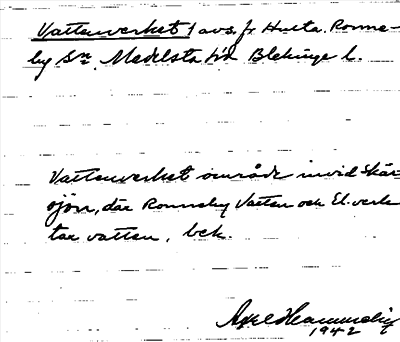 Vattenverket 1 avs. fr Hulta. Ronne-
by Sn. Medelsta hd Blekinge l.
Vattenverket område invid Skär-
sjön, där Ronneby Vatten och El. verk
tar vatten. bek.
Axel
1942